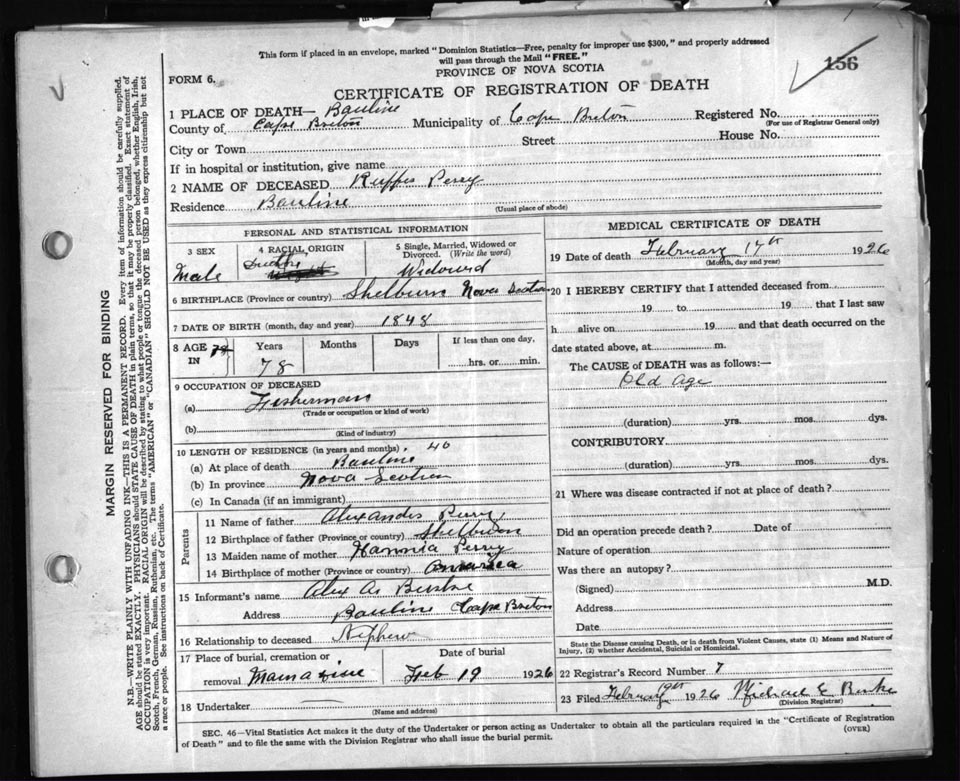 This form if placed in an envelope, marked "Dominion Statistics—Free, penalty for improper use $300," and properly addressed
will pass through the Mail "FREE."
156
FORM 6.
PROVINCE OF NOVA SCOTIA
CERTIFICATE OF REGISTRATION OF DEATH
1 PLACE OF DEATH— Bauline
County of Cape Breton Municipality of Cape Breton Registered No.
(For use of Registrar General only)
City or Town Street House No.
If in hospital or institution, give name
2 NAME OF DECEASED Ruffes Perry
Residence Bauline
(Usual place of abode)
PERSONAL AND STATISTICAL INFORMATION
3 SEX
Male
4 RACIAL ORIGIN
5 Single, Married, Widowed or
Divorced. (Write the word)
Widowed
6 BIRTHPLACE (Province or country) Shelburn Nova Scotia
7 DATE OF BIRTH (month, day and year) 1848
8 AGE IN
Years
78
Months
Days
If less than one day,
hrs. or min.
9 OCCUPATION OF DECEASED
(a) Fisherman
(Trade or occupation or kind of work)
(b)
(Kind of industry)
10 LENGTH OF RESIDENCE (in years and months) 40
(a) At place of death Bauline
(b) In province Nova Scotia
(c) In Canada (if an immigrant)
Parents
11 Name of father Alexander Perry
12 Birthplace of father (Province or country)
13 Maiden name of mother Hannia Perry
14 Birthplace of mother (Province or country)
15 Informant's name Alex A. Burke
Address Bauline Cape Breton
16 Relationship to deceased Nephew
17 Place of burial, cremation or
removal
Date of burial
Feb 19 1926
18 Undertaker
(Name and address)
MEDICAL CERTIFICATE OF DEATH
19 Date of death February 17th 1926
(Month, day and year)
20 I HEREBY CERTIFY that I attended deceased from
19 to 19 that I last saw
h alive on 19 and that death occurred on the
date stated above, at m.
The CAUSE of DEATH was as follows:—
Old Age
(duration) yrs. mos. dys.
CONTRIBUTORY
(duration) yrs. mos. dys.
21 Where was disease contracted if not at place of death?
Did an operation precede death? Date of
Nature of operation
Was there an autopsy?
(Signed) M.D.
Address
Date
State the Disease causing Death, or in death from Violent Causes, state (1) Means and Nature of
Injury, (2) whether Accidental, Suicidal or Homicidal.
22 Registrar's Record Number 7
23 Filed February 19th 1926 Michael E Burke
(Division Registrar)
SEC. 46—Vital Statistics Act makes it the duty of the Undertaker or person acting as Undertaker to obtain all the particulars required in the "Certificate of Registration
of Death" and to file the same with the Division Registrar who shall issue the burial permit.
(OVER)
MARGIN RESERVED FOR BINDING
N.B.—WRITE PLAINLY WITH UNFADING INK—THIS IS A PERMANENT RECORD. Every item of information should be carefully supplied.
AGE should be stated EXACTLY. PHYSICIANS should STATE CAUSE OF DEATH in plain terms, so that it may be properly classified. Exact statement of
OCCUPATION is very important. RACIAL ORIGIN will be described by stating to what people or tongue the deceased person belonged, whether English, Irish,
Scotch, French, German, Russian, Ruthenian, etc. The terms "AMERICAN" or "CANADIAN" SHOULD NOT BE USED as they express citizenship but not
a race or people. See instructions on back of Certificate.